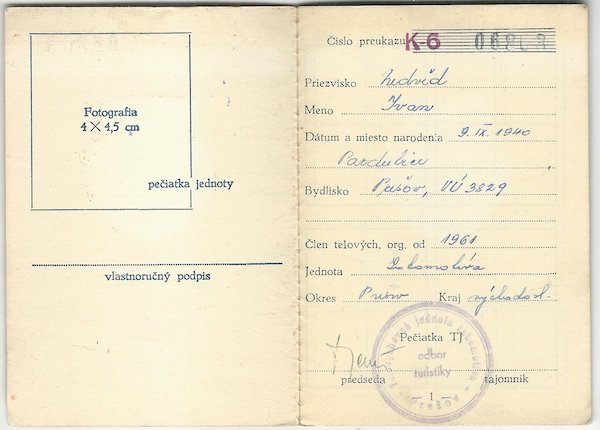 Fotografia
4 × 4,5 cm
pečiatka jednoty
vlastnoručný podpis
Číslo preukazu K-6
Priezvisko Nedvěd
Meno Ivan
Dátum a miesto narodenia 9. IX. 1940
Pardubice
Bydlisko Prešov, VÚ 3829
Člen telových. org. od 1961
Jednota Lokomotíva
Okres Prešov Kraj východosl.
Pečiatka TJ
odbor
turistiky
Prešov
predseda tajomník
1